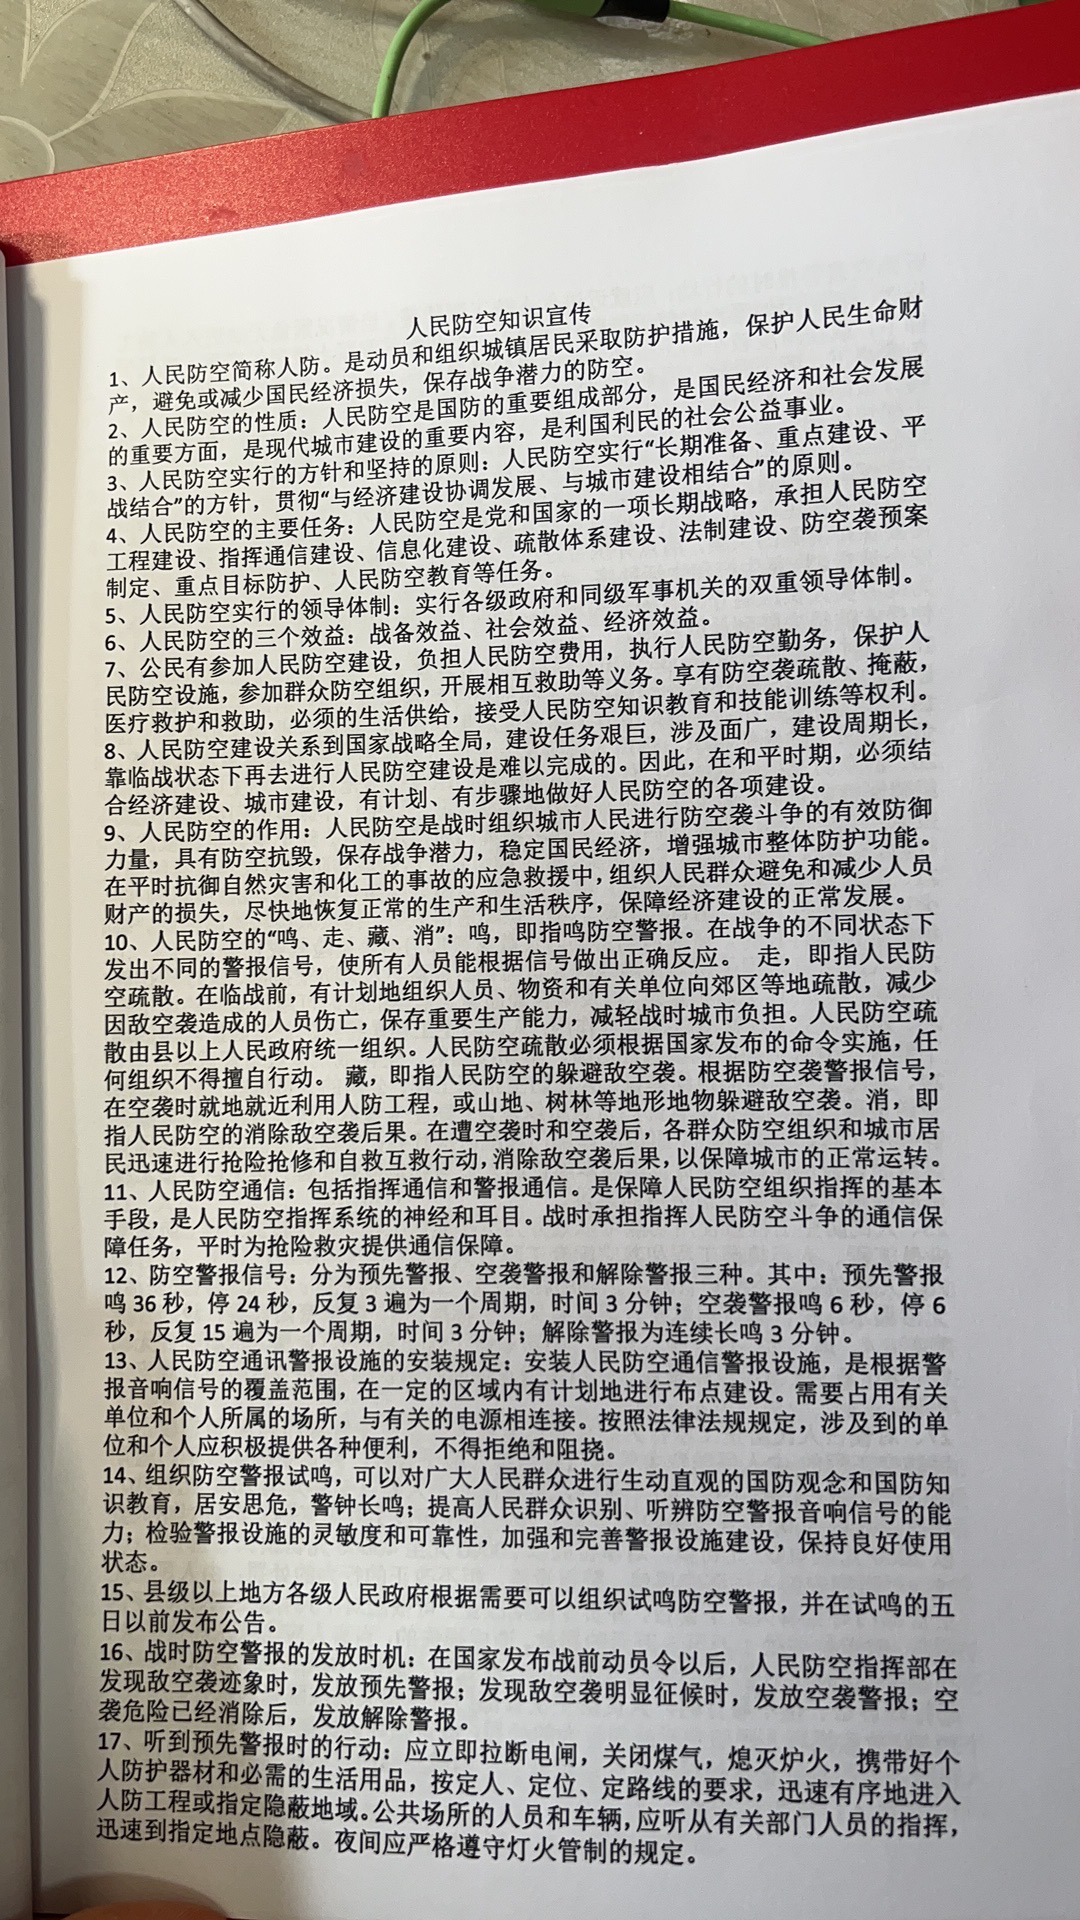 人民防空知识宣传
1、人民防空简称人防。是动员和组织城镇居民采取防护措施，保护人民生命财
产，避免或减少国民经济损失，保存战争潜力的防空。
2、人民防空的性质：人民防空是国防的重要组成部分，是国民经济和社会发展
的重要方面，是现代城市建设的重要内容，是利国利民的社会公益事业。
3、人民防空实行的方针和坚持的原则：人民防空实行“长期准备、重点建设、平
战结合”的方针，贯彻“与经济建设协调发展、与城市建设相结合”的原则。
4、人民防空的主要任务：人民防空是党和国家的一项长期战略，承担人民防空
工程建设、指挥通信建设、信息化建设、疏散体系建设、法制建设、防空袭预案
制定、重点目标防护、人民防空教育等任务。
5、人民防空实行的领导体制：实行各级政府和同级军事机关的双重领导体制。
6、人民防空的三个效益：战备效益、社会效益、经济效益。
7、公民有参加人民防空建设，负担人民防空费用，执行人民防空勤务，保护人
民防空设施，参加群众防空组织，开展相互救助等义务。享有防空袭疏散、掩蔽，
医疗救护和救助，必须的生活供给，接受人民防空知识教育和技能训练等权利。
8、人民防空建设关系到国家战略全局，建设任务艰巨，涉及面广，建设周期长，
靠临战状态下再去进行人民防空建设是难以完成的。因此，在和平时期，必须结
合经济建设、城市建设，有计划、有步骤地做好人民防空的各项建设。
9、人民防空的作用：人民防空是战时组织城市人民进行防空袭斗争的有效防御
力量，具有防空抗毁，保存战争潜力，稳定国民经济，增强城市整体防护功能。
在平时抗御自然灾害和化工的事故的应急救援中，组织人民群众避免和减少人员
财产的损失，尽快地恢复正常的生产和生活秩序，保障经济建设的正常发展。
10、人民防空的“鸣、走、藏、消”：鸣，即指鸣防空警报。在战争的不同状态下
发出不同的警报信号，使所有人员能根据信号做出正确反应。 走，即指人民防
空疏散。在临战前，有计划地组织人员、物资和有关单位向郊区等地疏散，减少
因敌空袭造成的人员伤亡，保存重要生产能力，减轻战时城市负担。人民防空疏
散由县以上人民政府统一组织。人民防空疏散必须根据国家发布的命令实施，任
何组织不得擅自行动。 藏，即指人民防空的躲避敌空袭。根据防空袭警报信号，
在空袭时就地就近利用人防工程，或山地、树林等地形地物躲避敌空袭。消，即
指人民防空的消除敌空袭后果。在遭空袭时和空袭后，各群众防空组织和城市居
民迅速进行抢险抢修和自救互救行动，消除敌空袭后果，以保障城市的正常运转。
11、人民防空通信：包括指挥通信和警报通信。是保障人民防空组织指挥的基本
手段，是人民防空指挥系统的神经和耳目。战时承担指挥人民防空斗争的通信保
障任务，平时为抢险救灾提供通信保障。
12、防空警报信号：分为预先警报、空袭警报和解除警报三种。其中：预先警报
鸣 36 秒，停 24 秒，反复 3 遍为一个周期，时间 3 分钟；空袭警报鸣 6 秒，停 6
秒，反复 15 遍为一个周期，时间 3 分钟；解除警报为连续长鸣 3 分钟。
13、人民防空通讯警报设施的安装规定：安装人民防空通信警报设施，是根据警
报音响信号的覆盖范围，在一定的区域内有计划地进行布点建设。需要占用有关
单位和个人所属的场所，与有关的电源相连接。按照法律法规规定，涉及到的单
位和个人应积极提供各种便利，不得拒绝和阻挠。
14、组织防空警报试鸣，可以对广大人民群众进行生动直观的国防观念和国防知
识教育，居安思危，警钟长鸣；提高人民群众识别、听辨防空警报音响信号的能
力；检验警报设施的灵敏度和可靠性，加强和完善警报设施建设，保持良好使用
状态。
15、县级以上地方各级人民政府根据需要可以组织试鸣防空警报，并在试鸣的五
日以前发布公告。
16、战时防空警报的发放时机：在国家发布战前动员令以后，人民防空指挥部在
发现敌空袭迹象时，发放预先警报；发现敌空袭明显征候时，发放空袭警报；空
袭危险已经消除后，发放解除警报。
17、听到预先警报时的行动：应立即拉断电闸，关闭煤气，熄灭炉火，携带好个
人防护器材和必需的生活用品，按定人、定位、定路线的要求，迅速有序地进入
人防工程或指定隐蔽地域。公共场所的人员和车辆，应听从有关部门人员的指挥，
迅速到指定地点隐蔽。夜间应严格遵守灯火管制的规定。